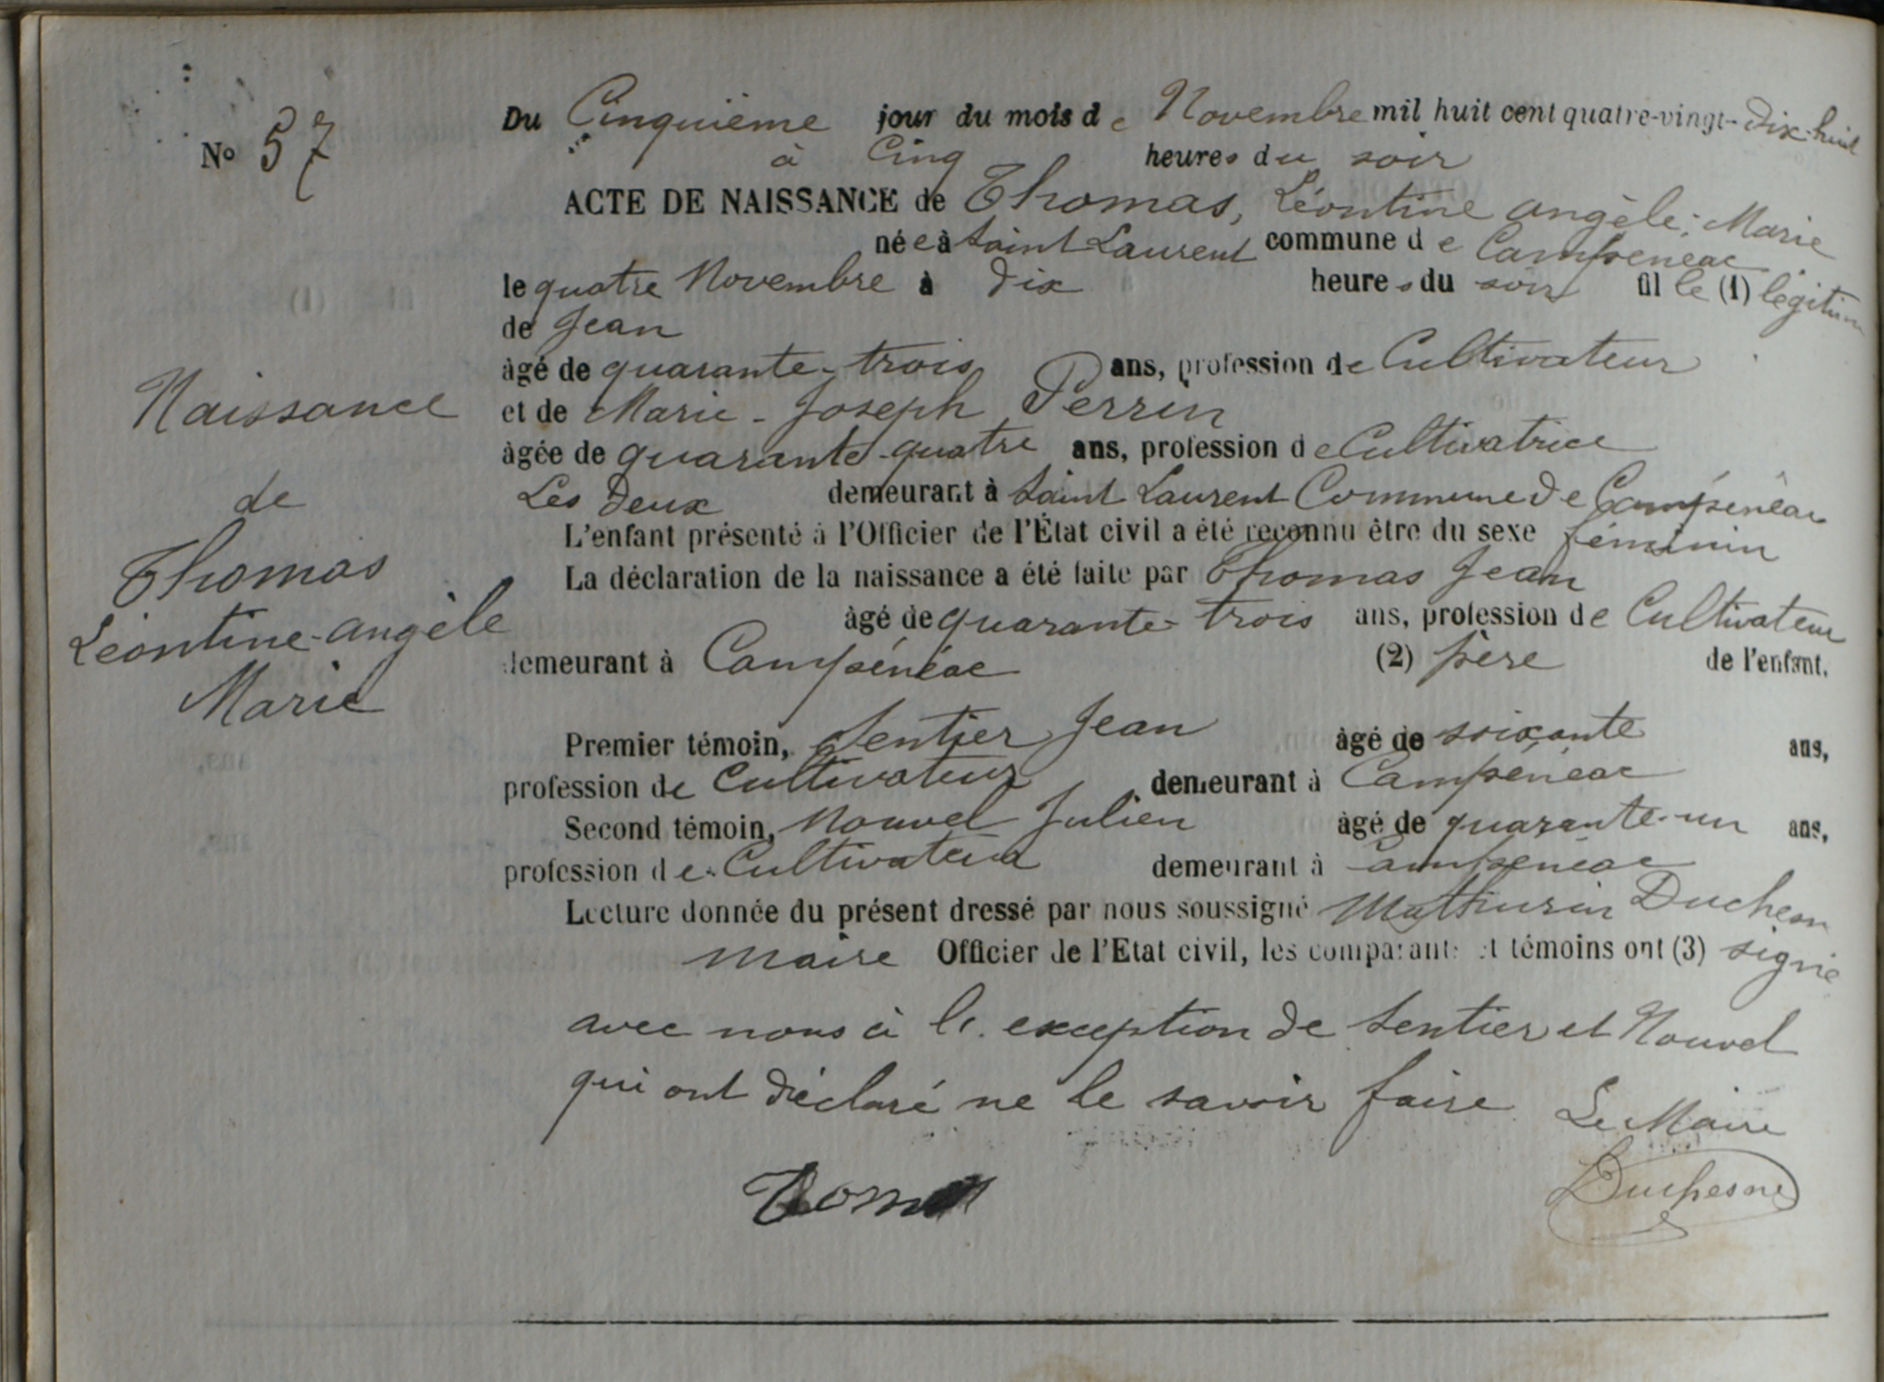 Du Cinquième jour du mois de Novembre mil huit cent quatre-vingt-dix-huit
à Cinq heures du soir
N° 57
ACTE DE NAISSANCE de Thomas, Léontine angèle, Marie
née à Saint Laurent commune de Campénéac
le quatre Novembre à dix heures du soir fille (1) légitime
de Jean
âgé de quarante-trois ans, profession de Cultivateur
et de Marie-Joseph Perrin
âgée de quarante-quatre ans, profession de Cultivatrice
Les deux demeurant à Saint Laurent Commune de Campénéac
L'enfant présenté à l'Officier de l'État civil a été reconnu être du sexe féminin
La déclaration de la naissance a été faite par Thomas Jean
âgé de quarante-trois ans, profession de Cultivateur
demeurant à Campénéac (2) père de l'enfant.
Naissance
de
Thomas
Léontine-angèle
Marie
Premier témoin, Sentier Jean âgé de soixante ans,
profession de Cultivateur demeurant à Campénéac
Second témoin, Nouvel Julien âgé de quarante-un ans,
profession de Cultivateur demeurant à Campénéac
Lecture donnée du présent dressé par nous soussigné Mathurin Duchesne
maire Officier de l'Etat civil, les comparants et témoins ont (3) signé
avec nous à l'exception de Sentier et Nouvel
qui ont déclaré ne le savoir faire Le Maire
Duchesne